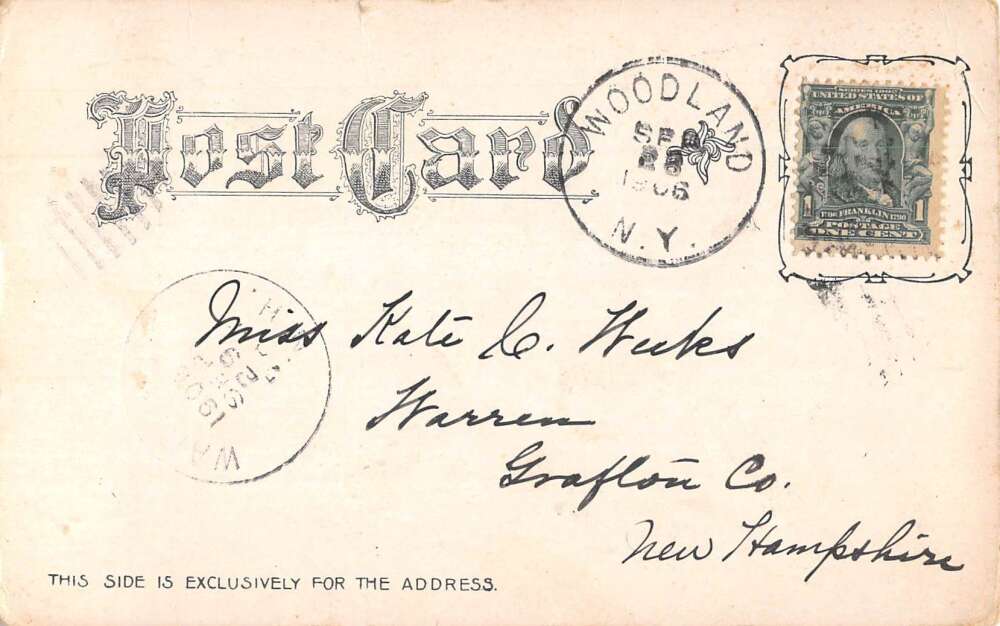 Post Card
WOODLAND
SEP
28
1906
N.Y.
SERIES 1902
UNITED STATES OF
AMERICA
1 1
FRANKLIN 1790
POSTAGE
ONE CENT
Miss Kate C. Weeks
Warren
Grafton Co.
New Hampshire
WA
SEP
1906
THIS SIDE IS EXCLUSIVELY FOR THE ADDRESS.